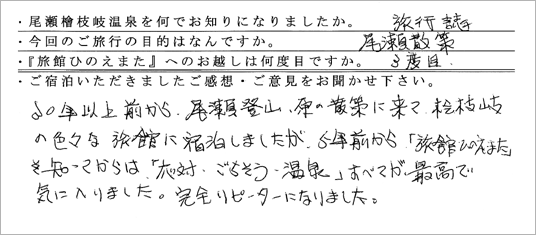 ・尾瀬檜枝岐温泉を何でお知りになりましたか。 旅行誌
・今回のご旅行の目的はなんですか。 尾瀬散策
・『旅館ひのえまた』へのお越しは何度目ですか。 3度目.
・ご宿泊いただきましたご感想・ご意見をお聞かせ下さい。
30年以上前から、尾瀬登山、原の散策に来て、桧枝岐
の色々な旅館に宿泊しましたが、5年前から「旅館ひのえまた」
を知ってからは「応対・ごちそう・温泉」すべてが最高で
気に入りました。完全リピーターになりました。